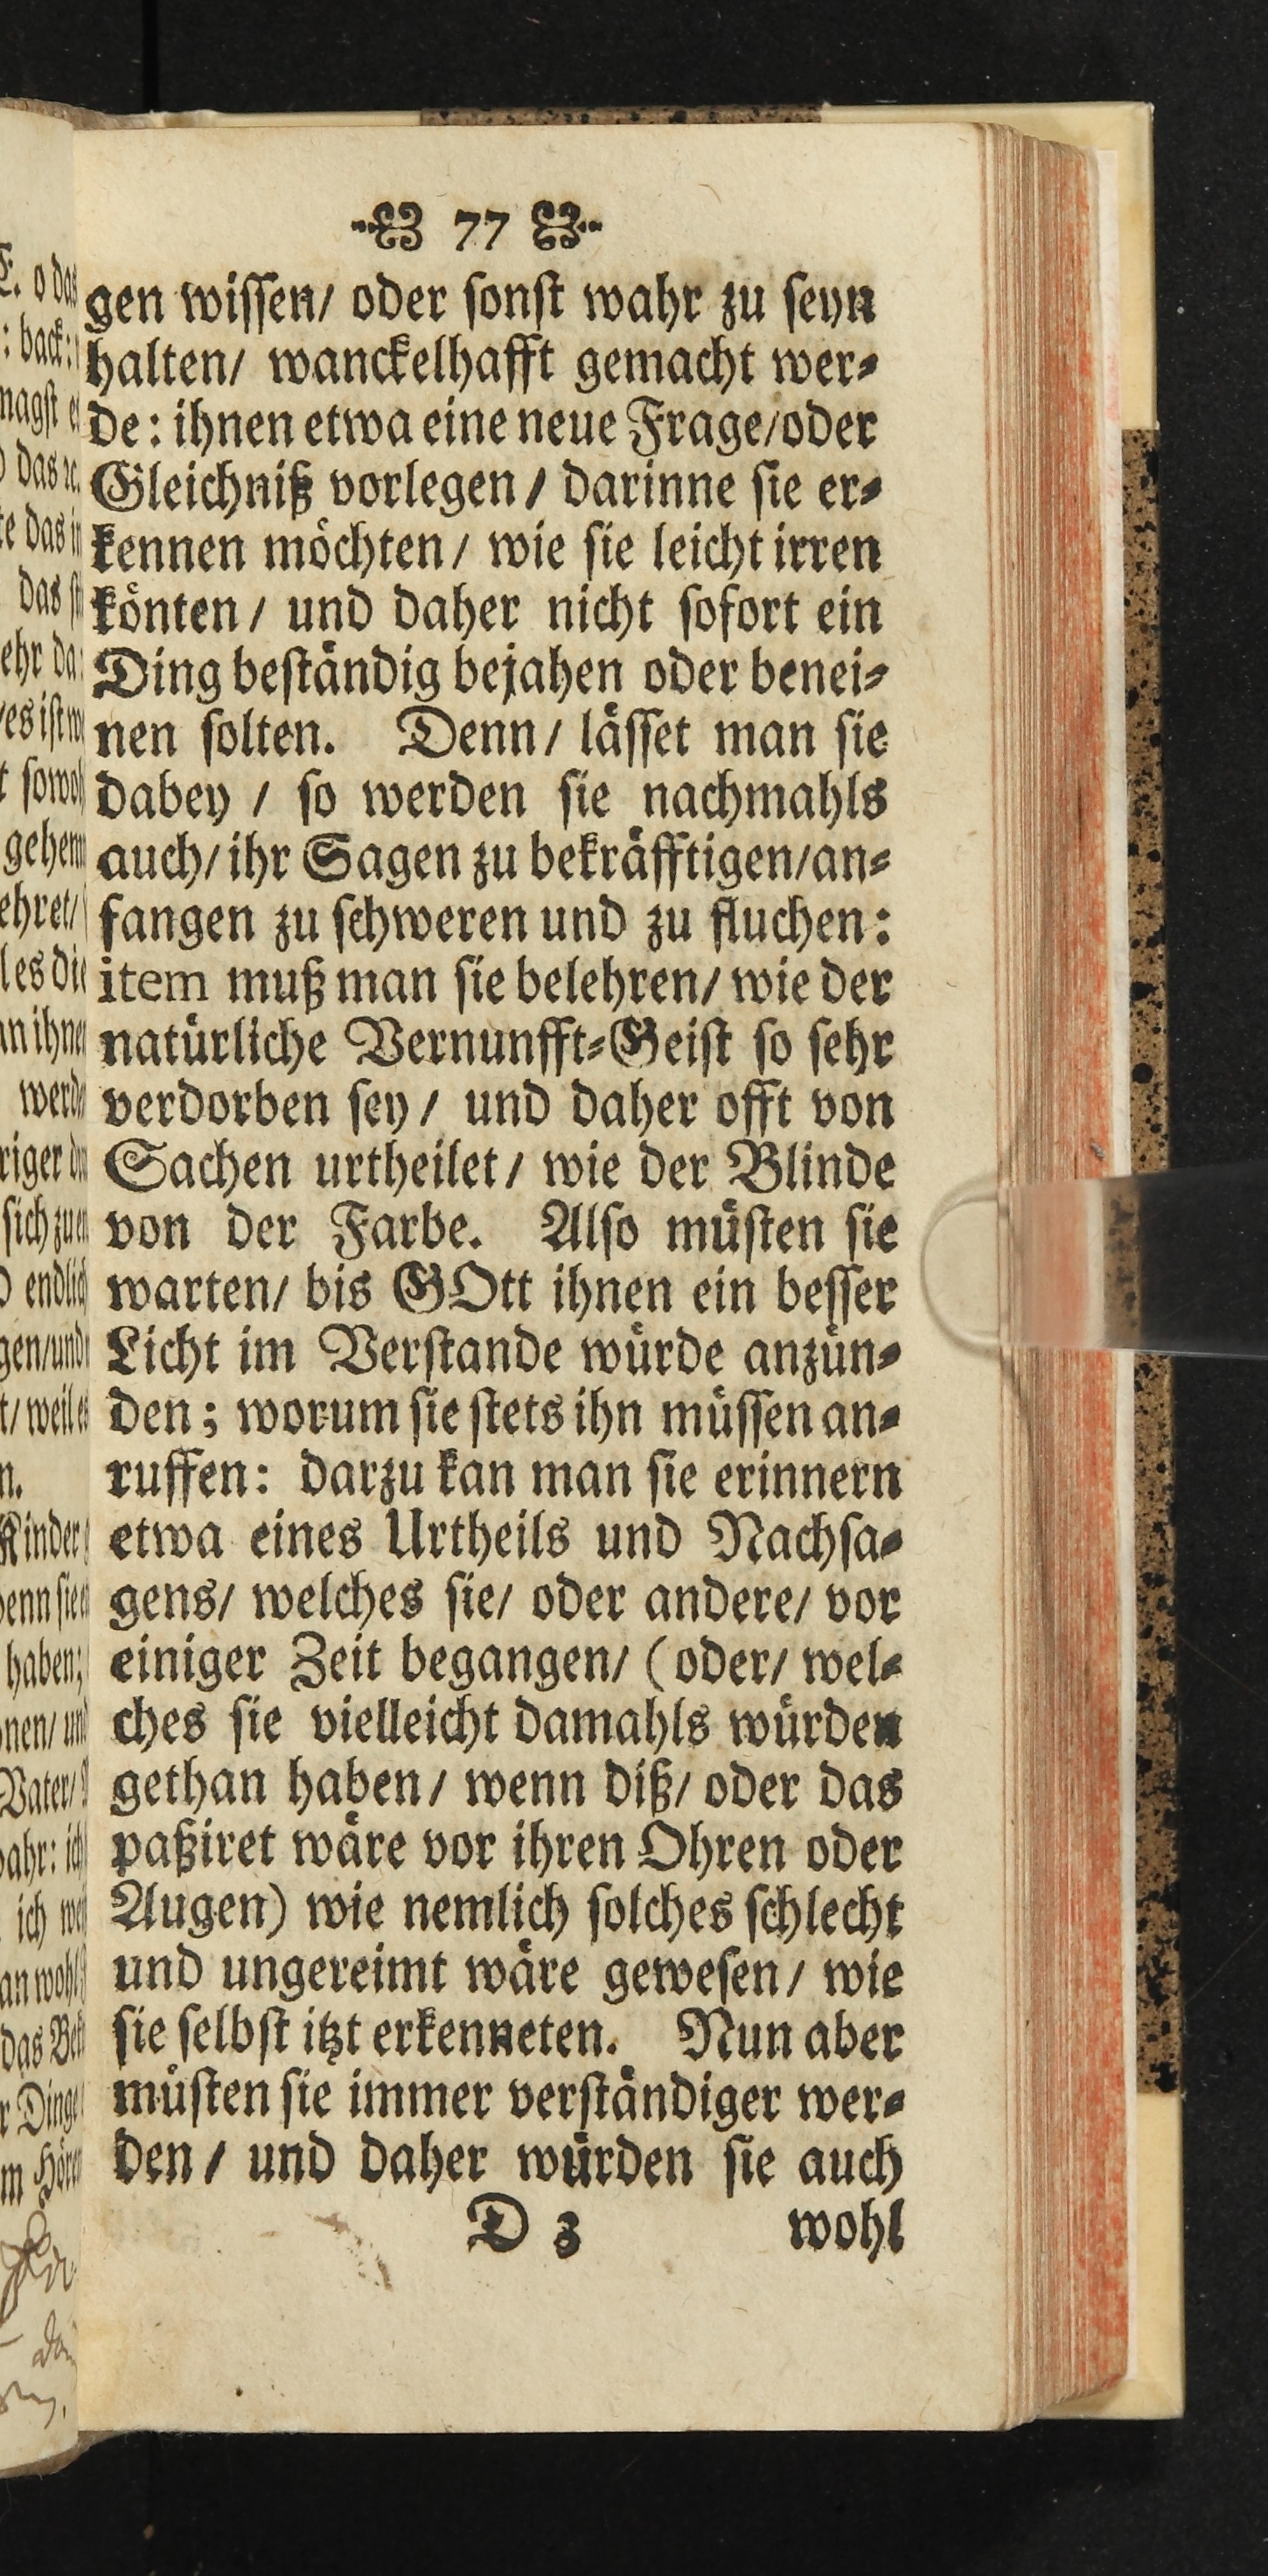 77
gen wiſſen/ oder ſonſt wahr zu ſeyn
halten/ wanckelhafft gemacht wer⸗
de: ihnen etwa eine neue Frage/oder
Gleichniß vorlegen/ darinne ſie er⸗
kennen möchten/ wie ſie leicht irren
könten/ und daher nicht ſofort ein
Ding beſtändig bejahen oder benei⸗
nen ſolten. Denn/ läſſet man ſie
dabey / ſo werden ſie nachmahls
auch/ ihr Sagen zu bekräfftigen/an⸗
fangen zu ſchweren und zu fluchen:
item muß man ſie belehren/ wie der
natürliche Vernunfft⸗Geiſt ſo ſehr
verdorben ſey/ und daher offt von
Sachen urtheilet/ wie der Blinde
von der Farbe. Alſo müſten ſie
warten/ bis GOtt ihnen ein beſſer
Licht im Verſtande würde anzün⸗
den; worum ſie ſtets ihn müſſen an⸗
ruffen: darzu kan man ſie erinnern
etwa eines Urtheils und Nachſa⸗
gens/ welches ſie/ oder andere/ vor
einiger Zeit begangen/ (oder/ wel⸗
ches ſie vielleicht damahls würden
gethan haben/ wenn diß/ oder das
paßiret wäre vor ihren Ohren oder
Augen) wie nemlich ſolches ſchlecht
und ungereimt wäre geweſen/ wie
ſie ſelbſt itzt erkenneten. Nun aber
müſten ſie immer verſtändiger wer⸗
den/ und daher würden ſie auch
D 3 wohl